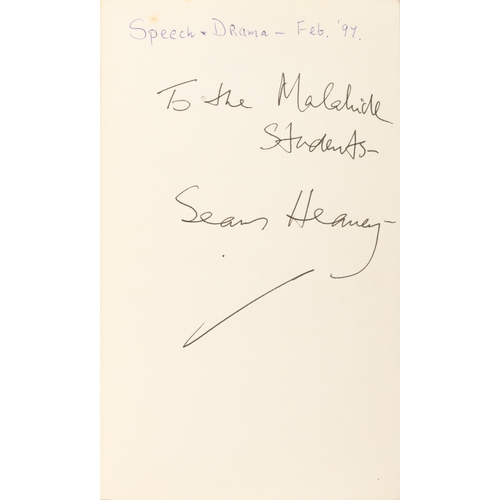 Speech & Drama - Feb. '97.
To the Malahide
Students -
Seamus Heaney -